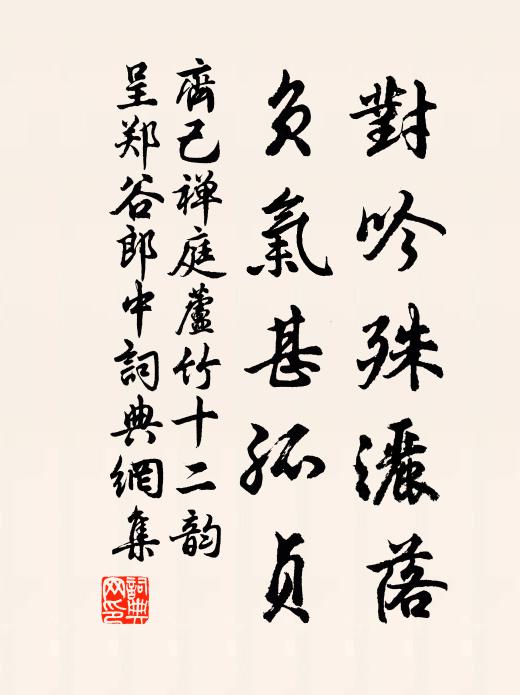 對吟殊灑落
負氣甚孤貞
齊己禅庭蘆竹十二韵
呈郑谷郎中詞典網集
詞典網印